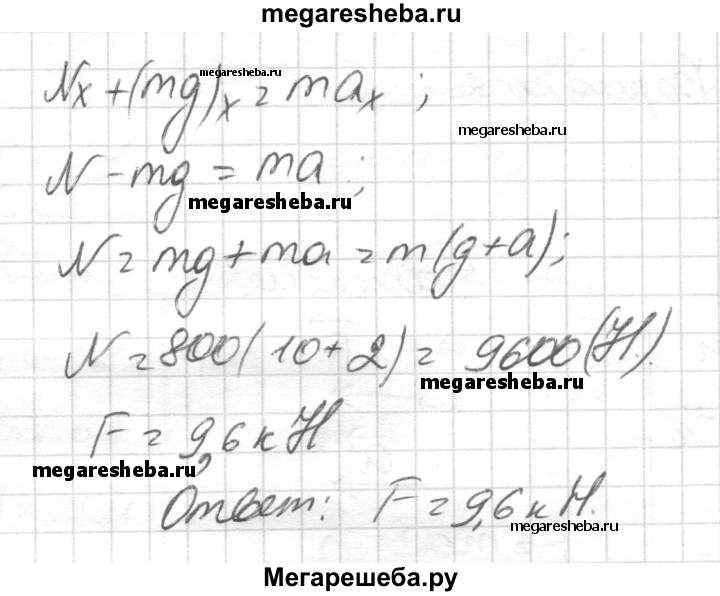 megaresheba.ru
Nx + (mg)x = max ;
megaresheba.ru
megaresheba.ru
N - mg = ma ;
megaresheba.ru
N = mg + ma = m(g+a);
N = 800(10+2) = 9600(Н).
megaresheba.ru
F = 9,6 кН
megaresheba.ru
Ответ: F = 9,6 кН.
megaresheba.ru
Мегарешеба.ру